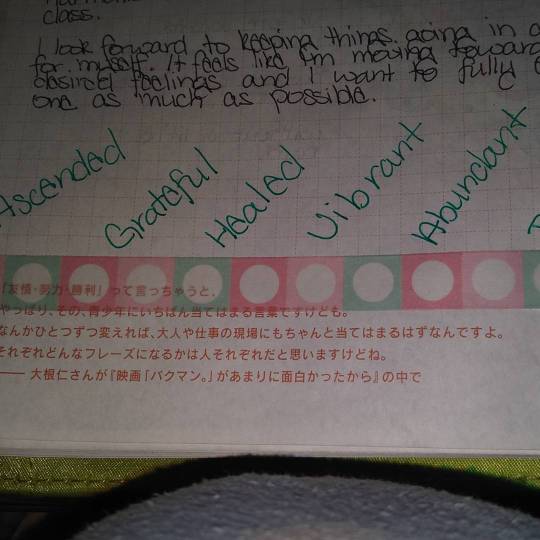 class.
I look forward to keeping things going in a
for myself. It feels like I'm moving toward
desired feelings and I want to fully
one as much as possible.
Ascended Grateful Healed Vibrant Abundant
「友情・努力・勝利」って言っちゃうと、
やっぱり、その、青少年にいちばん当てはまる言葉ですけども。
なんかひとつずつ変えれば、大人や仕事の現場にもちゃんと当てはまるはずなんですよ。
それぞれどんなフレーズになるかは人それぞれだと思いますけどね。
―― 大根仁さんが『映画「バクマン。」があまりに面白かったから』の中で